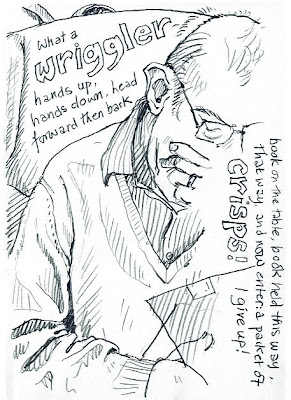 What a
wriggler
hands up,
hands down, head
forward then back
book on the table, book held this way,
that way, and now enter a packet of
crisps!
I give up!